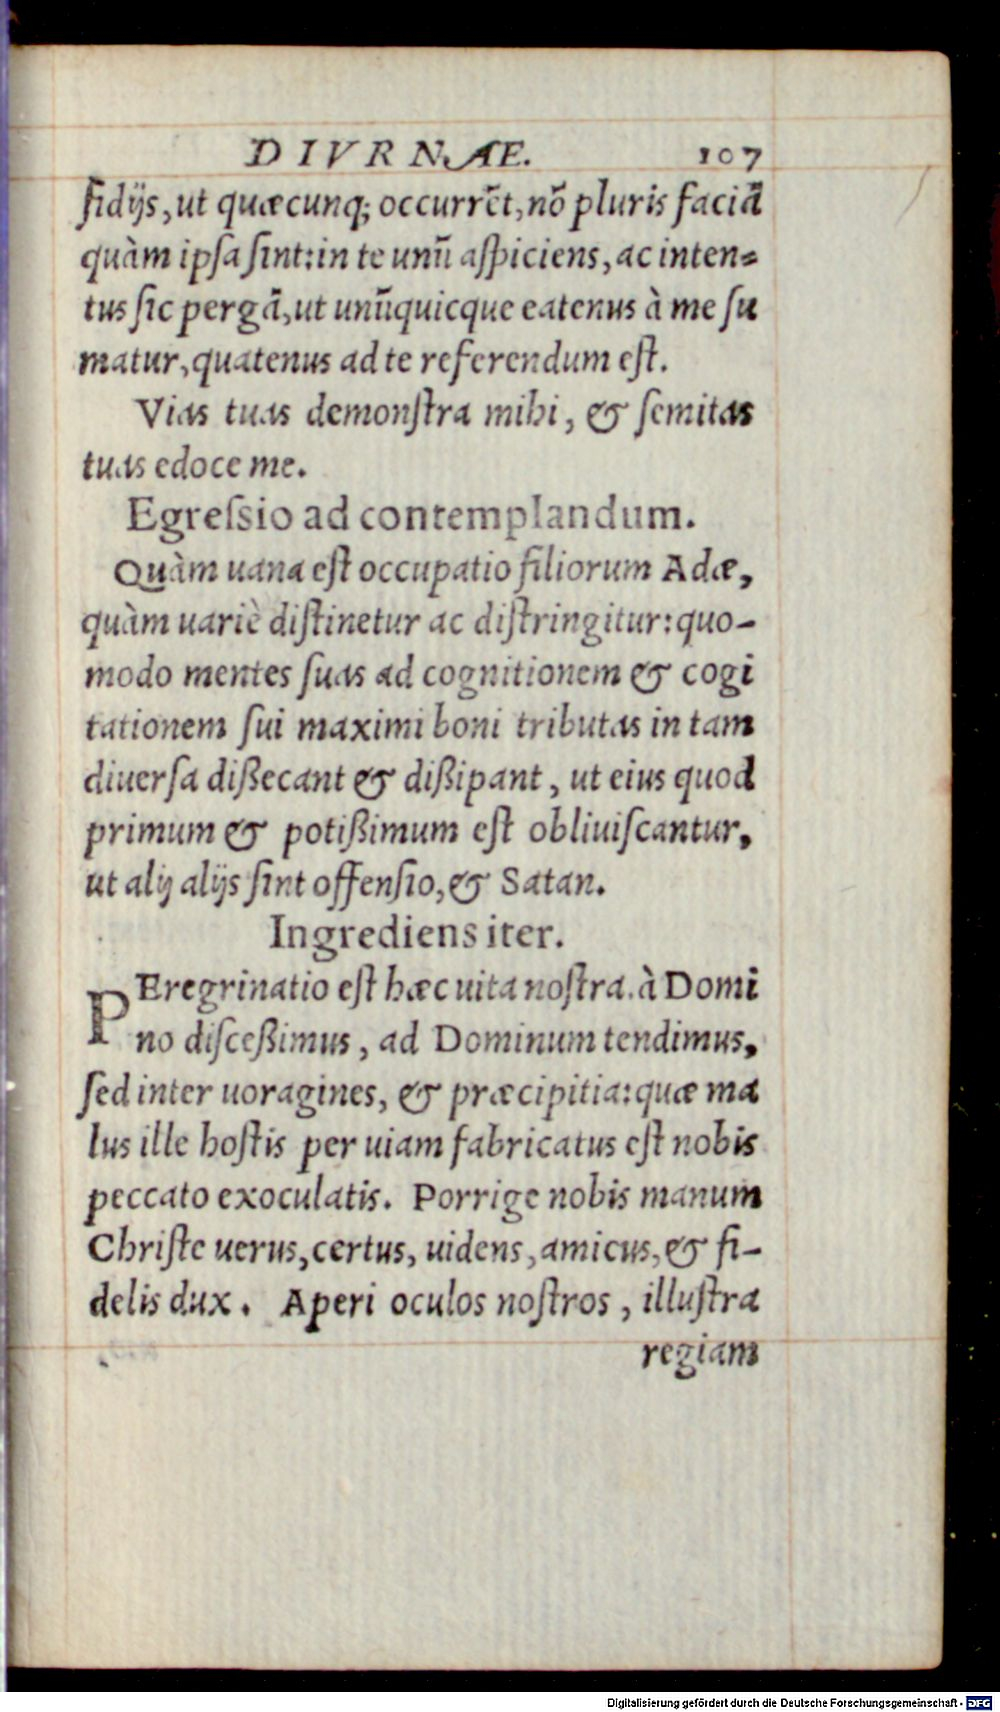 DIVRNAE. 107
ſidijs, ut quæcunq; occurrẽt, nõ pluris faciã
quàm ipſa ſint: in te unũ aſpiciens, ac inten=
tus ſic pergã, ut unũquicque eatenus à me ſu
matur, quatenus ad te referendum eſt.
Vias tuas demonſtra mihi, & ſemitas
tuas edoce me.
Egreſsio ad contemplandum.
Quàm uana eſt occupatio filiorum Adæ,
quàm uariè diſtinetur ac diſtringitur: quo-
modo mentes ſuas ad cognitionem & cogi
tationem ſui maximi boni tributas in tam
diuerſa dißecant & dißipant, ut eius quod
primum & potißimum eſt obliuiſcantur,
ut alij alijs ſint offenſio, & Satan.
Ingrediens iter.
PEregrinatio eſt hæc uita noſtra. à Domi
no diſceßimus, ad Dominum tendimus,
ſed inter uoragines, & præcipitia: quæ ma
lus ille hoſtis per uiam fabricatus eſt nobis
peccato exoculatis. Porrige nobis manum
Chriſte uerus, certus, uidens, amicus, & fi-
delis dux. Aperi oculos noſtros, illuſtra
regiam
Digitalisierung gefördert durch die Deutsche Forschungsgemeinschaft - DFG